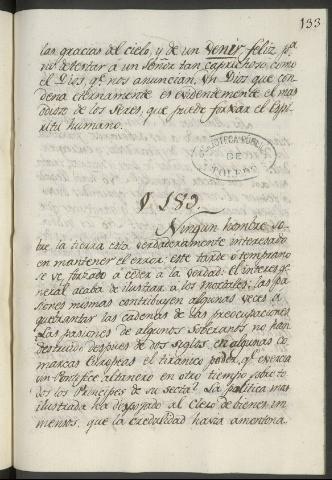 133
las gracias del cielo, y de un tener feliz pa
no detestar a un Señor tan caprichoso, como
el Dios, qe nos anuncian. Un Dios que con
dena eternamente es evidentemente el mas
odioso de los Seres, que puede forxar el Espi
ritu humano.
BIBLIOTECA POPULAR
DE
TOLEDO
§ 183.
Ningun hombre so-
bre la tierra esta verdaderamente interesado
en mantener el error: este tarde o temprano
se ve forzado a ceder a la verdad: el interes ge
neral acaba de ilustrar a los mortales: las pa
siones mismas contribuyen algunas veces a
quebrantar las cadenas de las preocupaciones
Las pasiones de algunos Soberanos no han
destruido despues de dos siglos en algunas co
marcas Europeas el tiranico poder, qe exercia
un Pontifice altanero en otro tiempo sobre to
dos los Principes de su secta? La politica mas
ilustrada ha despojado al Clero de bienes in
mensos, que la credulidad havia amontona